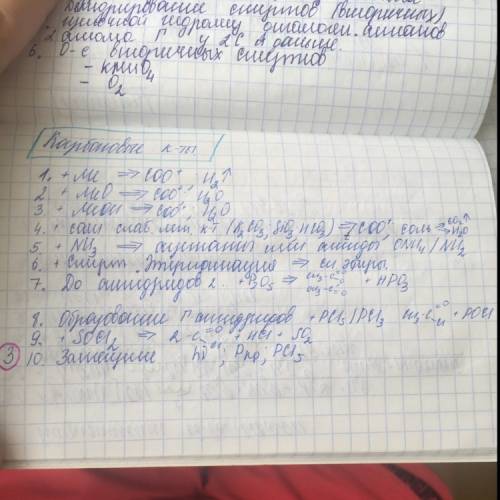 гидрирование спиртов (вторичных)
2 атома Г у 2С
6. О-е вторичных спиртов
– KMnO4
– O2
Карбоновые к-ты
1. + Me ⇒ COO⁺ H2↑
2 + MeO ⇒ COO⁺; H2O
3 + MeOH ⇒ COO⁺; H2O
4. + соли слаб. мин. к-т (K2CO3; SiO3 HCO3) ⇒ COO⁺; соль + CO2↑ H2O
5 + NH3 ⇒ ацитаты или амиды ONH4/NH2
6 + Спирт Этерификация ⇒ сл. эфиры.
7. До ангидридов 2. + P2O5 ⇒ CH3-C=O CH3-C=O + HPO3
8. Образование Гангидридов + PCl5/PCl3 CH3-C=O Cl + POCl
9. + SOCl2 ⇒ 2-C=O Cl + HCl + SO2
3
10. Замещение hν; Pкр; PCl5